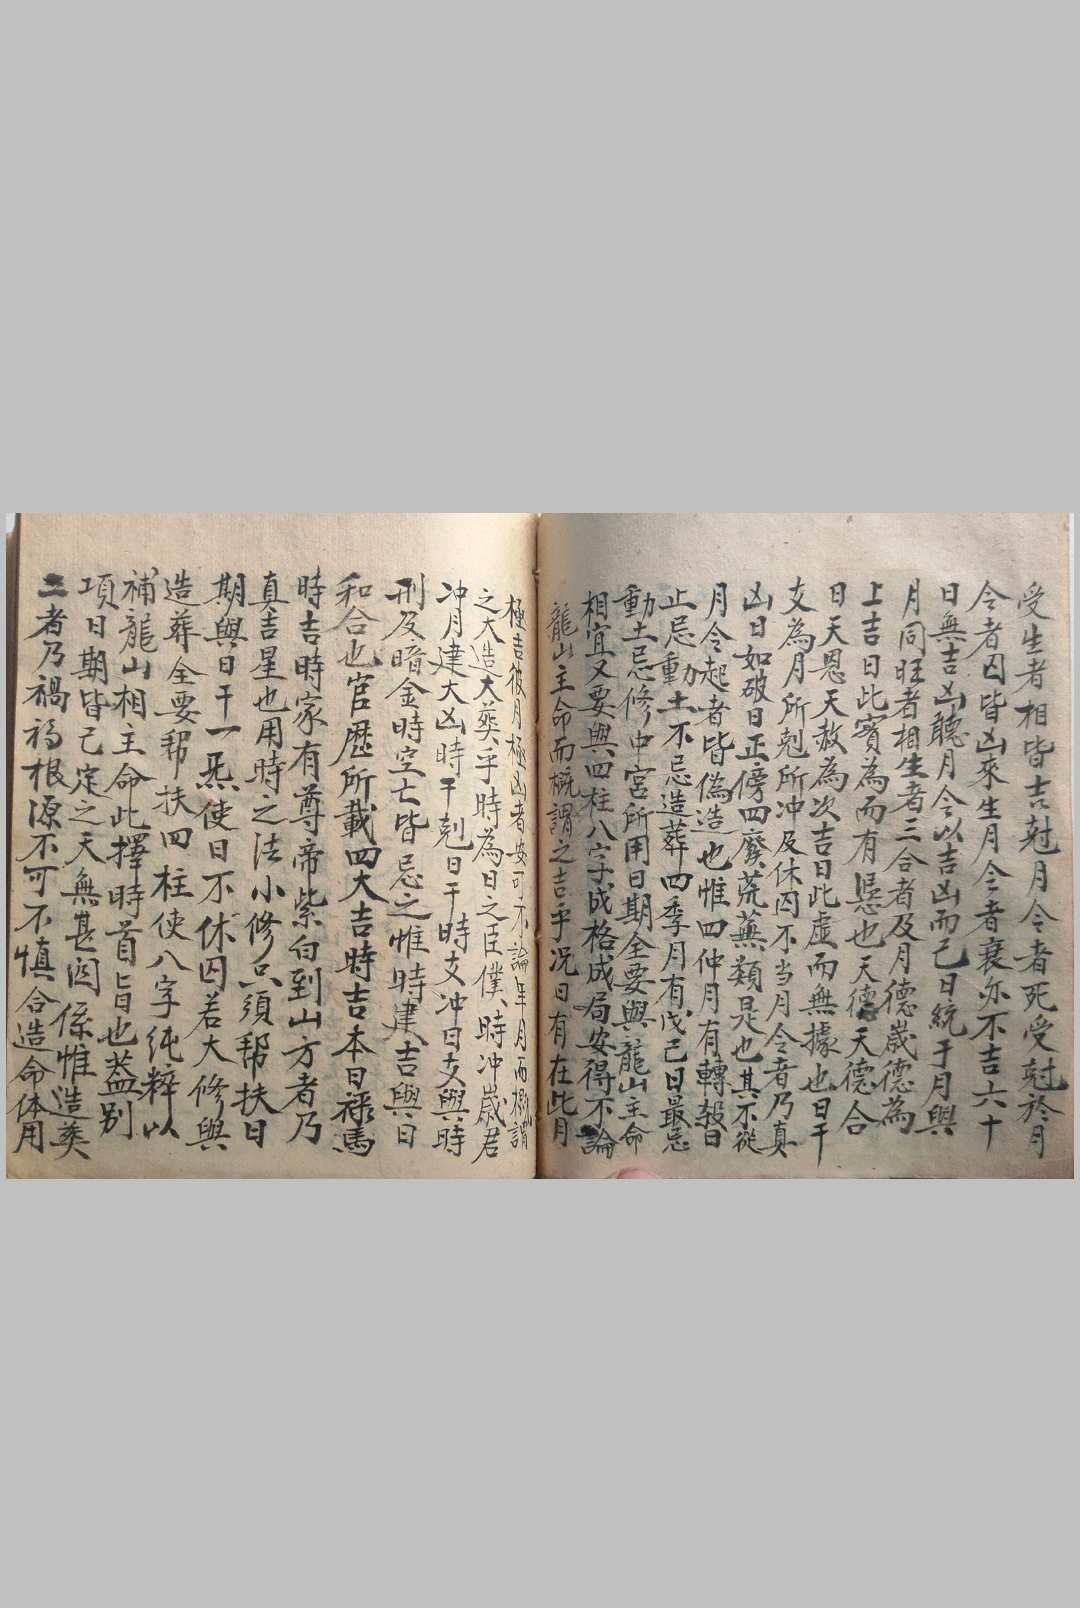 受生者相皆吉尅月令者死受尅於月
令者囚皆凶來生月令者衰亦不吉六十
日無吉凶聽月令以吉凶而已日統于月與
月同旺者相生者三合者及月德歲德為
上吉日此實為而有慿也天德天德合
日天恩天赦為次吉日此虛而無據也日干
支為月所剋所冲及休囚不当月令者乃真
凶日如破日正傍四廢荒蕪類是也其不從
月令起者皆偽造也惟四仲月有轉殺日
止忌動土不忌造葬四季月有戊己日最忌
動土忌修中宮所用日期全要與龍山主命
相宜又要與四柱八字成格成局安得不論
龍山主命而概謂之吉乎况日有在此月
極吉彼月極凶者安可不論年月而概謂
之大造大葬乎時為日之臣僕時冲歲君
冲月建大凶時干剋日干時支冲日支與時
刑及暗金時空亡皆忌之惟時建吉與日
和合也官歷所載四大吉時吉本日祿馬
時吉時家有尊帝紫白到山方者乃
真吉星也用時之法小修只須帮扶日
期與日干一炁使日不休囚若大修與
造葬全要帮扶四柱使八字純粹以
補龍山相主命此擇時首旨也盖别
項日期皆已定之天無甚関係惟造葬
二者乃禍福根源不可不慎合造命体用